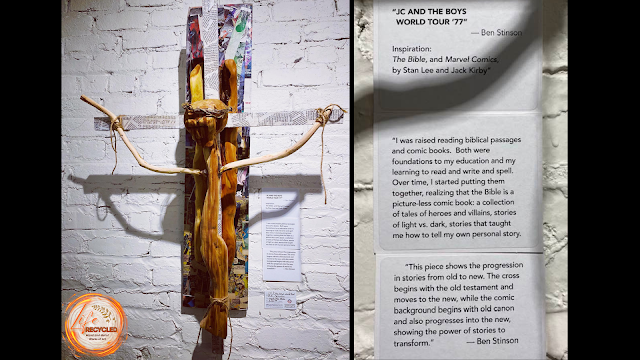 "JC AND THE BOYS
WORLD TOUR '77"
— Ben Stinson
Inspiration:
The Bible, and Marvel Comics,
by Stan Lee and Jack Kirby"
"I was raised reading biblical passages
and comic books. Both were
foundations to my education and my
learning to read and write and spell.
Over time, I started putting them
together, realizing that the Bible is a
picture-less comic book: a collection
of tales of heroes and villains, stories
of light vs. dark, stories that taught
me how to tell my own personal story.
"This piece shows the progression
in stories from old to new. The cross
begins with the old testament and
moves to the new, while the comic
background begins with old canon
and also progresses into the new,
showing the power of stories to
transform." — Ben Stinson
RECYCLED